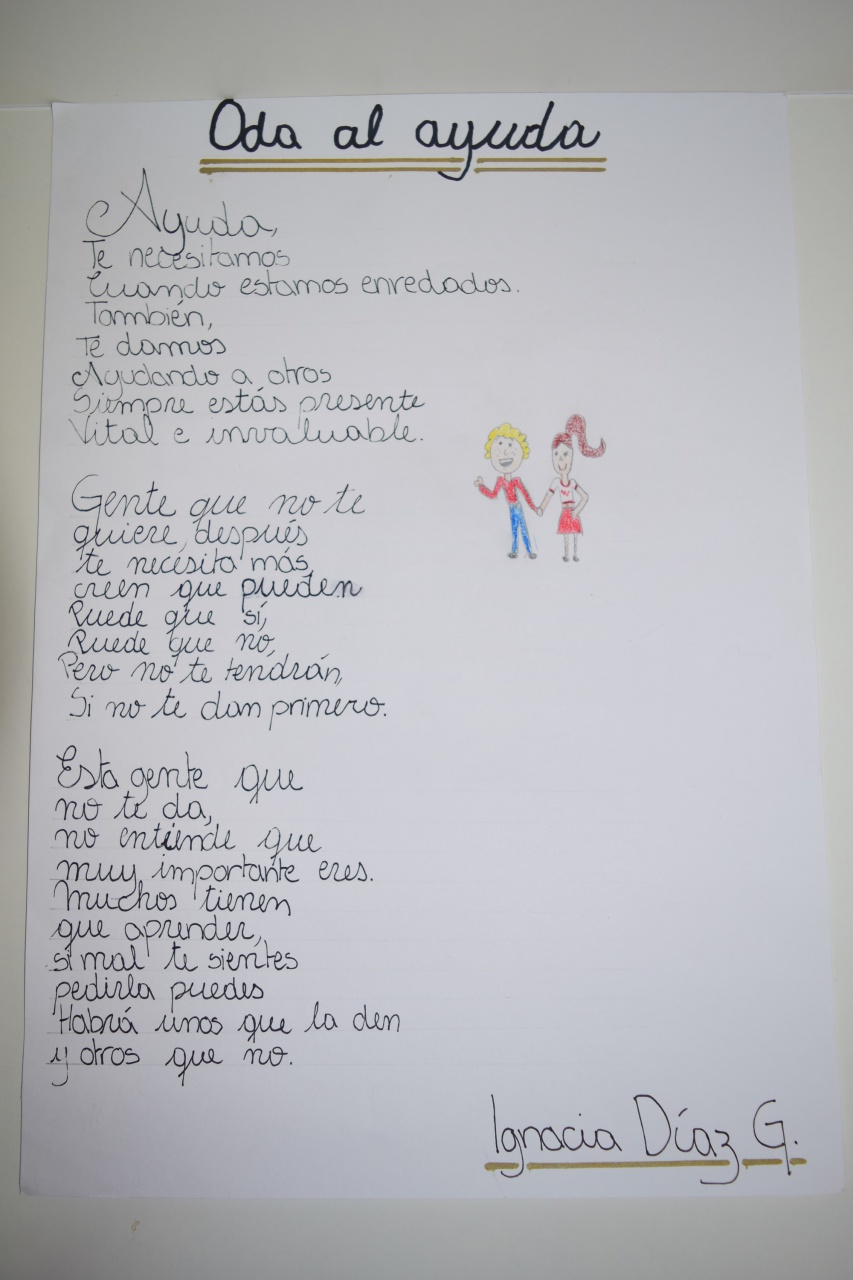 Oda al ayuda
Ayuda,
Te necesitamos
Cuando estamos enredados.
También,
Te damos
Ayudando a otros
Siempre estás presente
Vital e invaluable.
Gente que no te
quiere, después
te necesita más,
creen que pueden
Puede que sí,
Puede que no,
Pero no te tendrán,
Si no te dan primero.
Esta gente que
no te da,
no entiende que
muy importante eres.
Muchos tienen
que aprender,
si mal te sientes
pedirla puedes
Habrá unos que la den
y otros que no.
Ignacia Díaz G.